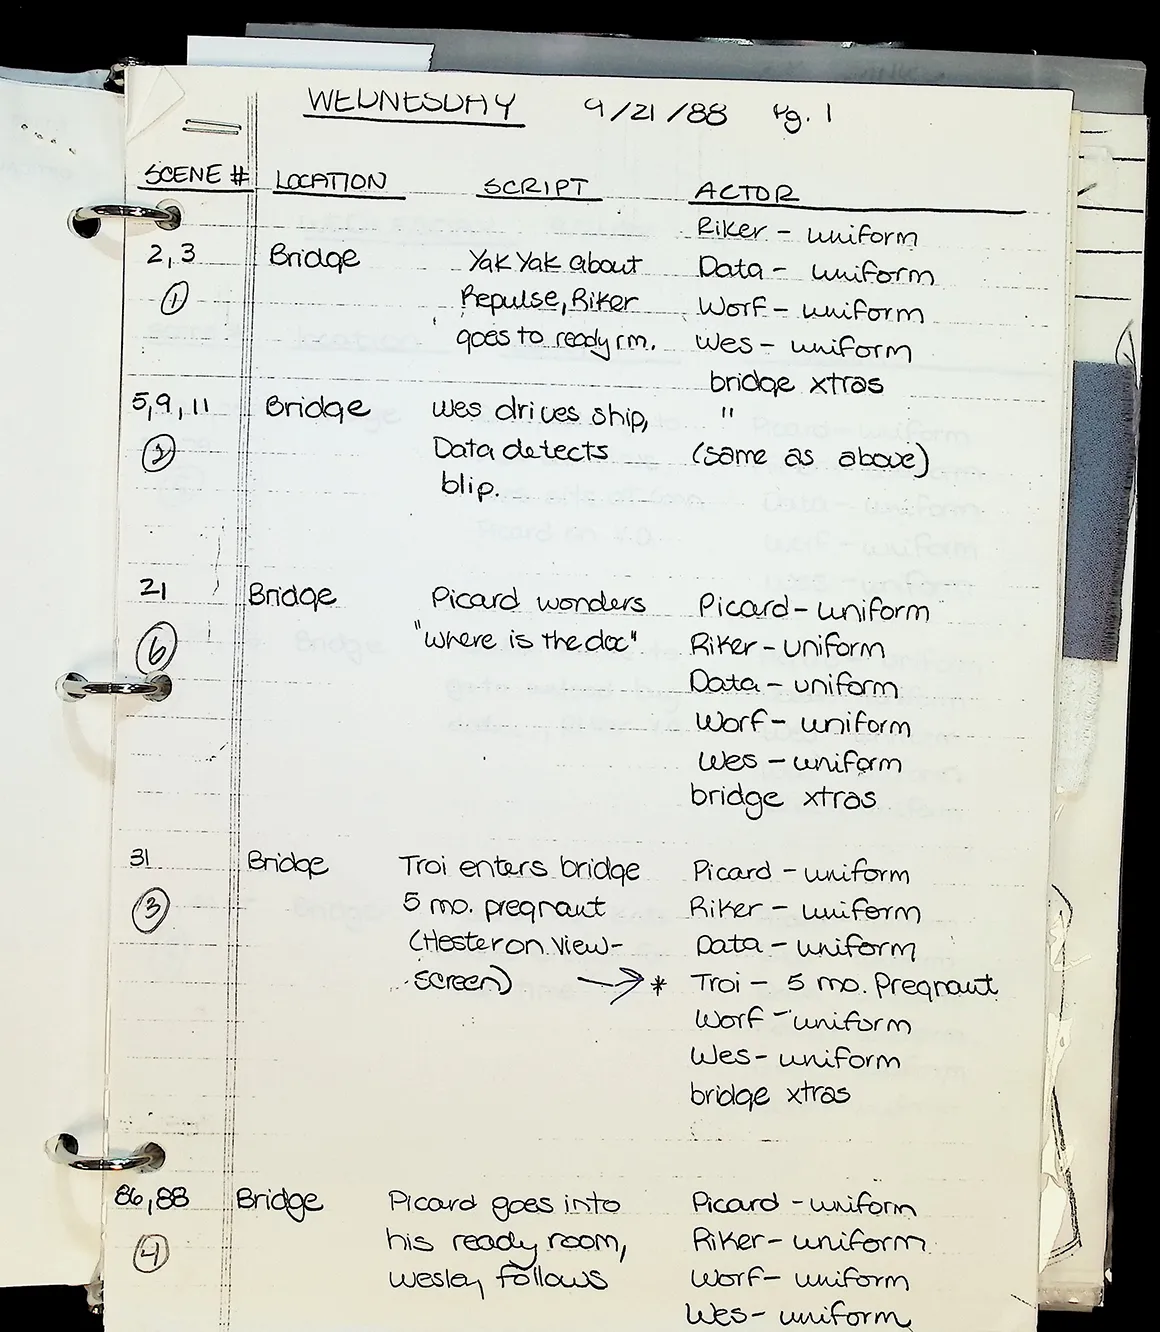 WEDNESDAY 9/21/88 pg. 1
SCENE # LOCATION SCRIPT ACTOR
Riker - uniform
2,3 Bridge Yak Yak about Data - uniform
① Repulse, Riker Worf - uniform
goes to ready rm. Wes - uniform
bridge xtras
5,9,11 Bridge Wes drives ship, "
② Data detects (same as above)
blip.
21 Bridge Picard wonders Picard - uniform
⑥ "where is the doc". Riker - uniform
Data - uniform
Worf - uniform
Wes - uniform
bridge xtras
31 Bridge Troi enters bridge Picard - uniform
③ 5 mo. pregnant Riker - uniform
(Hester on view- Data - uniform
screen) → * Troi - 5 mo. Pregnant
Worf - uniform
Wes - uniform
bridge xtras
86,88 Bridge Picard goes into Picard - uniform
④ his ready room, Riker - uniform
Wesley follows Worf - uniform
Wes - uniform